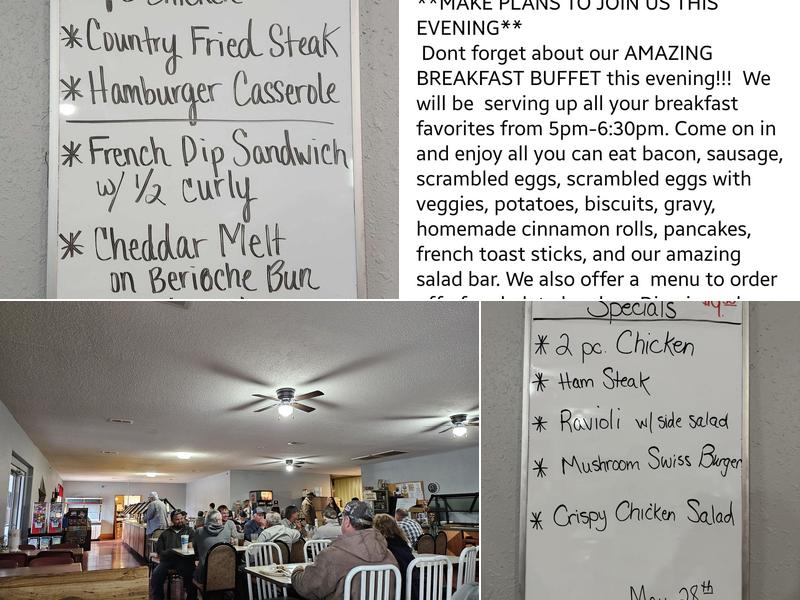 * Country Fried Steak
* Hamburger Casserole
* French Dip Sandwich
w/ 1/2 curly
* Cheddar Melt
on Berioche Bun
**MAKE PLANS TO JOIN US THIS
EVENING**
Dont forget about our AMAZING
BREAKFAST BUFFET this evening!!! We
will be serving up all your breakfast
favorites from 5pm-6:30pm. Come on in
and enjoy all you can eat bacon, sausage,
scrambled eggs, scrambled eggs with
veggies, potatoes, biscuits, gravy,
homemade cinnamon rolls, pancakes,
french toast sticks, and our amazing
salad bar. We also offer a menu to order
Specials
* 2 pc. Chicken
* Ham Steak
* Ravioli w/ side salad
* Mushroom Swiss Burger
* Crispy Chicken Salad
May 28th